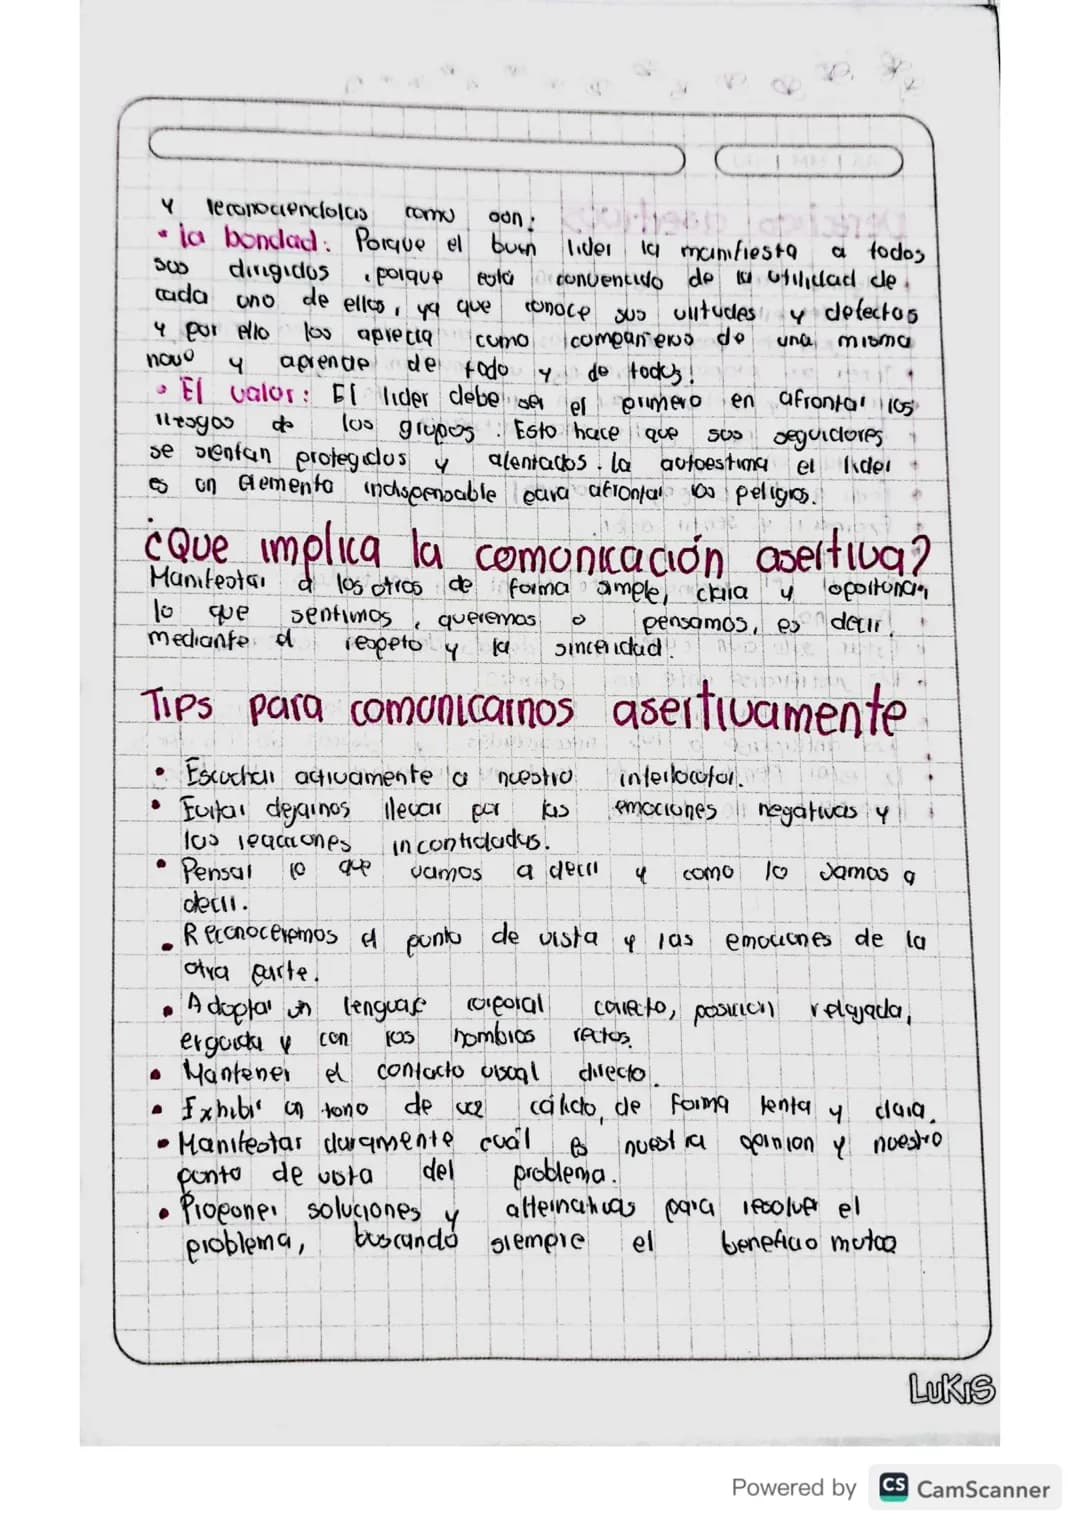 y reconociendolas como son:
• la bondad: Porque el buen lider la manifiesta a todos
sus dirigidos, porque está convencido de la utilidad de
cada uno de ellos, ya que conoce sus virtudes y defectos
y por ello los aprecia como compañeros de una misma
nave y aprende de todo y de todos!
• El valor: El lider debe ser el primero en afrontar los
riesgos de los grupos. Esto hace que sus seguidores
se sientan protegidos y alentados. la autoestima el lider
es un elemento indispensable para afrontar los peligros.
¿Que implica la comunicación asertiva?
Manifestar a los otros de forma simple, clara y oportuna,
lo que sentimos, queremos o pensamos, es decir,
mediante el respeto y la sinceridad.
Tips para comunicarnos asertivamente
• Escuchar activamente a nuestro interlocutor.
• Evitar dejarnos llevar por las emociones negativas y
las reacciones incontroladas.
• Pensar lo que vamos a decir y como lo vamos a
decir.
• Reconoceremos el punto de vista y las emociones de la
otra parte.
• Adoptar un lenguaje corporal correcto, posicion relajada,
erguida y con los hombros rectos.
• Mantener el contacto visual directo.
• Exhibir un tono de voz cálido, de forma lenta y clara.
• Manifestar claramente cuál es nuestra opinion y nuestro
punto de vista del problema.
• Proponer soluciones y alternativas para resolver el
problema, buscando siempre el beneficio mutuo
LUKIS
Powered by CS CamScanner